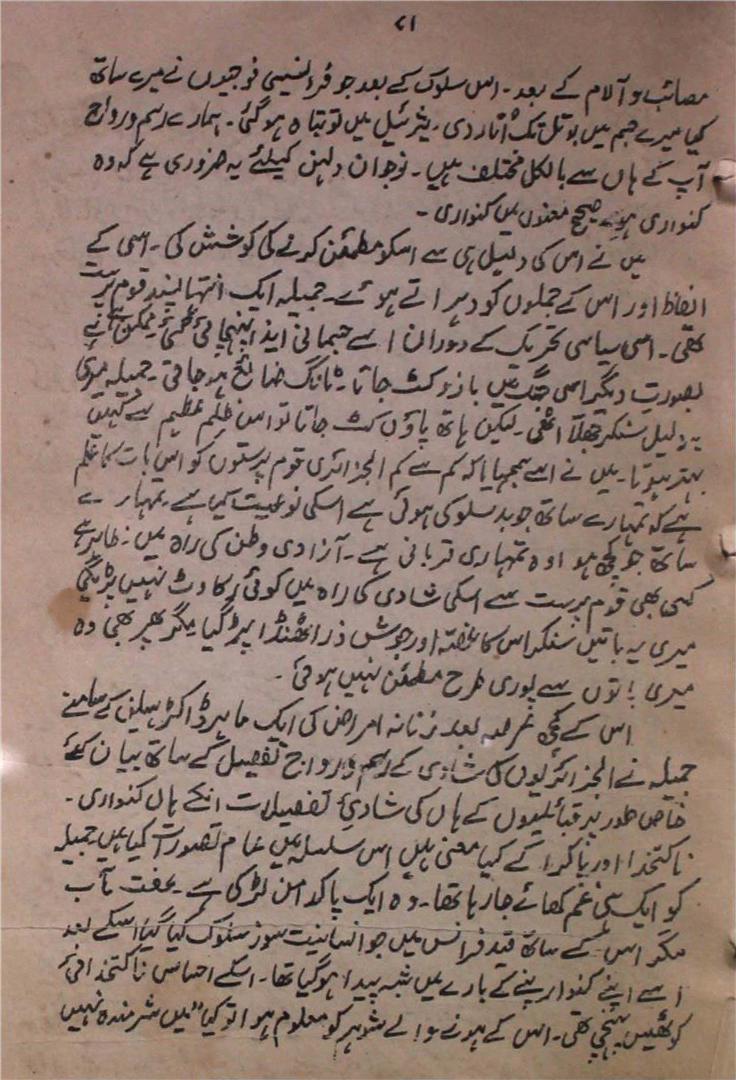 ۸۱
مصائب و آلام کے بعد۔ اس سلوک کے بعد جو فرانسیسی فوجیوں نے میرے ساتھ
کیا میرے جسم میں بوتل تک اتار دی۔ یثرئیل میں تو تباہ ہوگئی۔ ہمارے رسم و رواج
آپ کے ہاں سے بالکل مختلف ہیں۔ نوجوان دلہن کیلئے یہ ضروری ہے کہ وہ
کنواری ہو۔ صحیح معنوں میں کنواری۔
میں نے اس کی دلیل ہی سے اسکو مطمئن کرنے کی کوشش کی۔ اسی کے
الفاظ اور اس کے جملوں کو دہراتے ہوئے۔ جمیلہ ایک انتہا پسند قوم پرست
تھی۔ اسی سیاسی تحریک کے دوران اسے جسمانی ایذا پہنچائی گئی۔ ممکن ہے
بصورت دیگر اسی جنگ میں بازو کٹ جاتا۔ ٹانگ ضائع ہو جاتی۔ جمیلہ میری
یہ دلیل سنکر جھلّا اٹھی۔ لیکن ہاتھ پاؤں کٹ جاتا تو اس ظلم عظیم سے کہیں
بہتر ہوتا۔ میں نے اسے سمجھایا کہ کم سے کم الجزائری قوم پرستوں کو اس بات کا علم
ہے کہ تمہارے ساتھ جو بدسلوکی ہوئی ہے اسکی نوعیت کیا ہے۔ تمہارے
ساتھ جو کچھ ہوا وہ تمہاری قربانی ہے۔ آزادی وطن کی راہ میں۔ ظاہر ہے
کسی بھی قوم پرست سے اسکی شادی کی راہ میں کوئی رکاوٹ نہیں پڑیگی
میری یہ باتیں سنکر اس کا غصہ اور جوش ذرا ٹھنڈا پڑ گیا مگر پھر بھی وہ
میری باتوں سے پوری طرح مطمئن نہیں ہوئی۔
اس کے کچھ عرصہ بعد زنانہ امراض کی ایک ماہر ڈاکٹر ہیلین کے سامنے
جمیلہ نے الجزائریوں کی شادی کے رسم و رواج تفصیل کے ساتھ بیان کئے
خاص طور پر قبائلیوں کے ہاں کی شادی تفصیلات انکے ہاں کنواری۔
ناکتخدا اور باکرا کے کیا معنی ہیں اس سلسلہ میں عام تصورات کیا ہیں جمیلہ
کو ایک ہی غم کھائے جا رہا تھا۔ وہ ایک پاکدامن لڑکی ہے۔ عفت مآب
مگر اس کے ساتھ قید فرانس میں جو انسانیت سوز سلوک کیا گیا اسکے بعد
اسے اپنے کنوارپنے کے بارے میں شبہ پیدا ہوگیا تھا۔ اسکے احساس ناکتخدائی
کو ٹھیس پہنچی تھی۔ اس کے ہونے والے شوہر کو معلوم ہوا تو کیا "میں شرمندہ نہیں